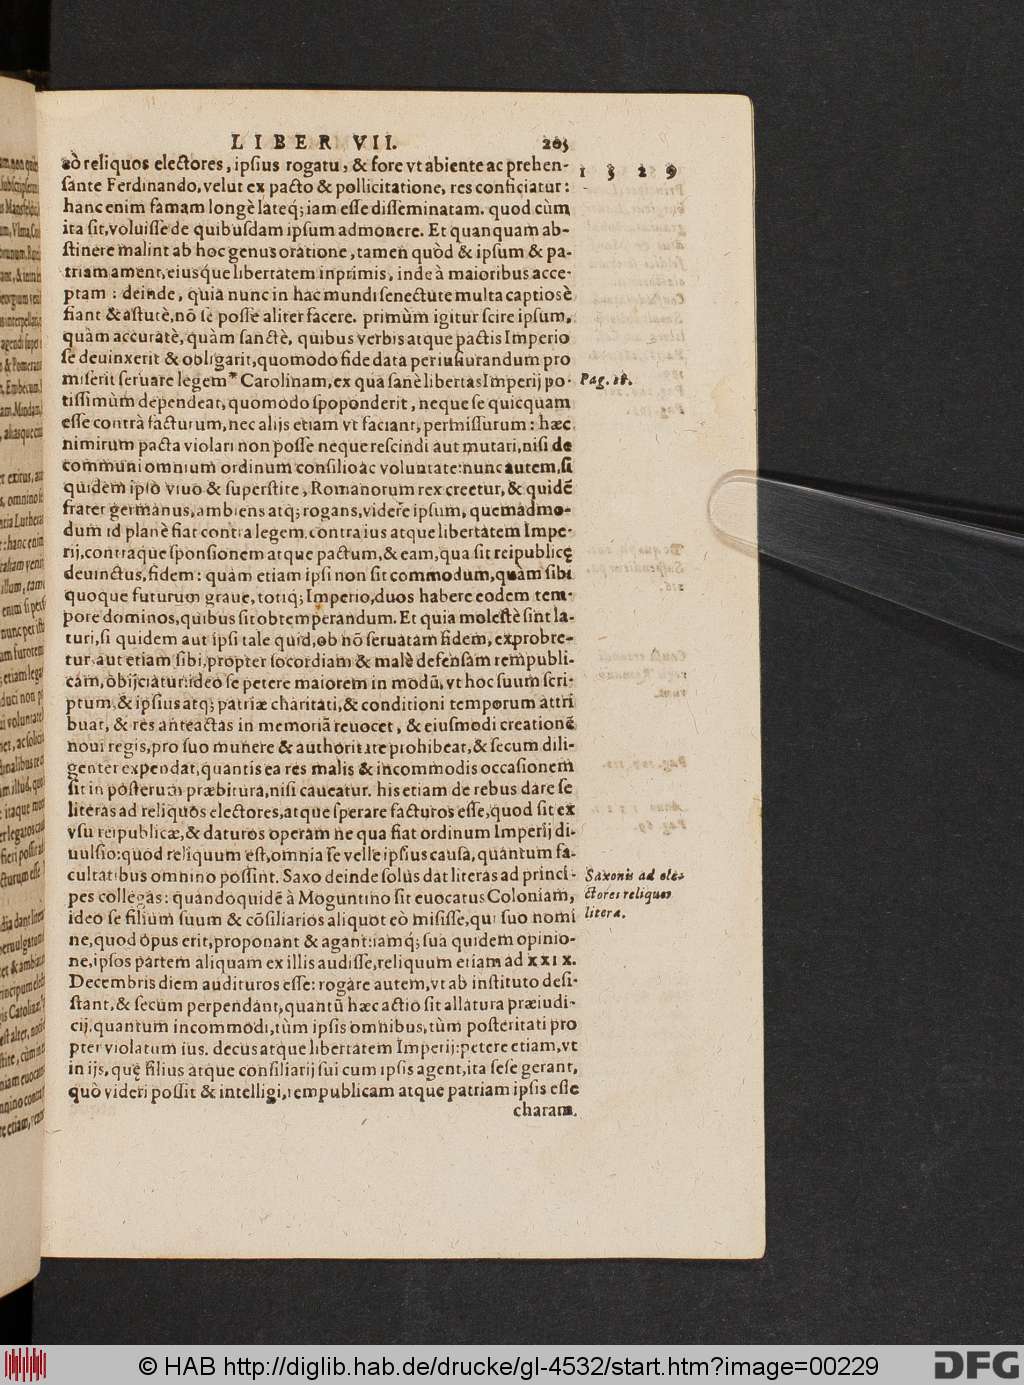 LIBER VII. 205
1 5 2 9
eò reliquos electores, ipsius rogatu, & fore vt abiente ac prehen-
sante Ferdinando, velut ex pacto & pollicitatione, res conficiatur:
hanc enim famam longè lateq; iam esse disseminatam. quod cùm
ita sit, voluisse de quibusdam ipsum admonere. Et quanquam ab-
stinere malint ab hoc genus oratione, tamen quòd & ipsum & pa-
triam ament, eiusque libertatem inprimis, inde à maioribus acce-
ptam: deinde, quia nunc in hac mundi senectute multa captiosè
fiant & astutè, nõ se posse aliter facere. primùm igitur scire ipsum,
quàm accuratè, quàm sanctè, quibus verbis atque pactis Imperio
se deuinxerit & obligarit, quomodo fide data per iusiurandum pro
miserit seruare legem* Carolinam, ex qua sanè libertas Imperij po-
Pag. 18.
tissimùm dependeat, quomodo spoponderit, neque se quicquam
esse contrà facturum, nec alijs etiam vt faciant, permissurum: hæc
nimirum pacta violari non posse neque rescindi aut mutari, nisi de
communi omnium ordinum consilio ac voluntate: nunc autem, si
quidem ipso viuo & superstite, Romanorum rex creetur, & quidẽ
frater germanus, ambiens atq; rogans, videre ipsum, quemadmo-
dum id planè fiat contra legem, contra ius atque libertatem Impe-
rij, contraque sponsionem atque pactum, & eam, qua sit reipublicę
deuinctus, fidem: quàm etiam ipsi non sit commodum, quàm sibi
quoque futurum graue, totiq; Imperio, duos habere eodem tem-
pore dominos, quibus sit obtemperandum. Et quia molestè sint la-
turi, si quidem aut ipsi tale quid, ob nõ seruatam fidem, exprobre-
tur, aut etiam sibi, propter socordiam & malè defensam rempubli-
cam, obijciatur: ideo se petere maiorem in modũ, vt hoc suum scri-
ptum, & ipsius atq; patriæ charitati, & conditioni temporum attri
buat, & res anteactas in memoriã reuocet, & eiusmodi creationẽ
noui regis, pro suo munere & authoritate prohibeat, & secum dili-
genter expendat, quantis ea res malis & incommodis occasionem
sit in posterum præbitura, nisi caueatur. his etiam de rebus dare se
literas ad reliquos electores, atque sperare facturos esse, quod sit ex
vsu reipublicæ, & daturos operam ne qua fiat ordinum Imperij di-
uulsio: quod reliquum est, omnia se velle ipsius causa, quantum fa-
cultatibus omnino possint. Saxo deinde solus dat literas ad princi-
Saxonis ad ele-
pes collegas: quandoquidẽ à Moguntino sit euocatus Coloniam,
ctores reliquos
ideo se filium suum & cõsiliarios aliquot eò misisse, qui suo nomi
literæ.
ne, quod opus erit, proponant & agant: iamq; sua quidem opinio-
ne, ipsos partem aliquam ex illis audisse, reliquum etiam ad XXIX.
Decembris diem audituros esse: rogare autem, vt ab instituto desi-
stant, & secum perpendant, quantũ hæc actio sit allatura præiudi-
cij, quantum incommodi, tùm ipsis omnibus, tùm posteritati pro
pter violatum ius, decus atque libertatem Imperij: petere etiam, vt
in ijs, quę filius atque consiliarij sui cum ipsis agent, ita sese gerant,
quò videri possit & intelligi, rempublicam atque patriam ipsis esse
charam.
© HAB http://diglib.hab.de/drucke/gl-4532/start.htm?image=00229
DFG